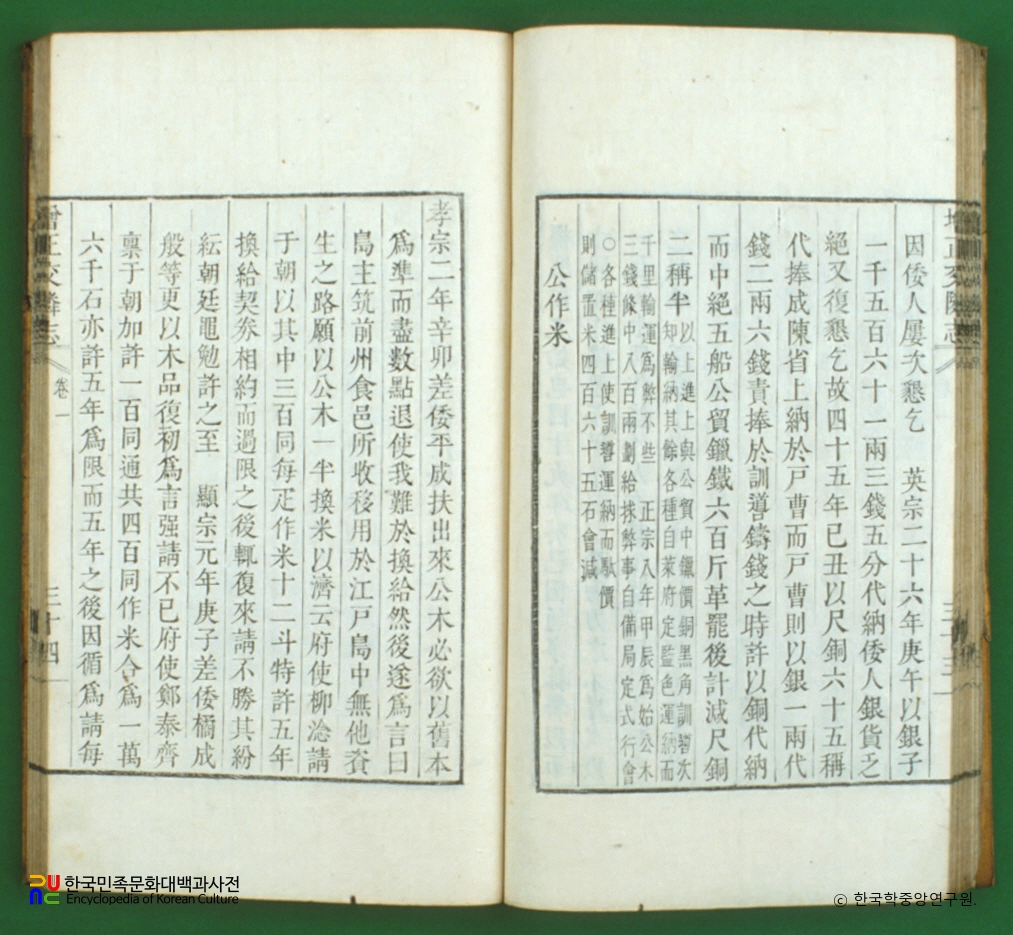 增正交隣志
因倭人屢次懇乞　英宗二十六年庚午以銀子
一千五百六十一兩三錢五分代納倭人銀貨乏
絕又復懇乞故四十五年己丑以尺銅六十五稱
代捧成陳省上納於戶曹而戶曹則以銀一兩代
錢二兩六錢責捧於訓導鑄錢之時許以銅代納
而中絕五船公貿鑞鐵六百斤革罷後計減尺銅
二稱半
以上進上與公貿中鑞價銅黑角訓導次
知輸納其餘各種自萊府定監色運納而
千里輸運爲弊不些　正宗八年甲辰爲始公木
三錢條中八百兩劃給捄弊事自備局定式行會
○各種進上使訓導運納而駄價
則儲置米四百六十五石會減
公作米
孝宗二年辛卯差倭平成扶出來公木必欲以舊本
爲準而盡數點退使我難於換給然後遂爲言曰
島主筑前州食邑所收移用於江戶島中無他資
生之路願以公木一半換米以濟云府使柳淰請
于朝以其中三百同每疋作米十二斗特許五年
換給契券相約而過限之後輒復來請不勝其紛
紜朝廷黽勉許之至　顯宗元年庚子差倭橘成
般等更以木品復初爲言强請不已府使鄭泰齊
稟于朝加許一百同通共四百同作米合爲一萬
六千石亦許五年爲限而五年之後因循爲請每
增正交隣志
卷一
三十四
한국민족문화대백과사전
Encyclopedia of Korean Culture
© 한국학중앙연구원.